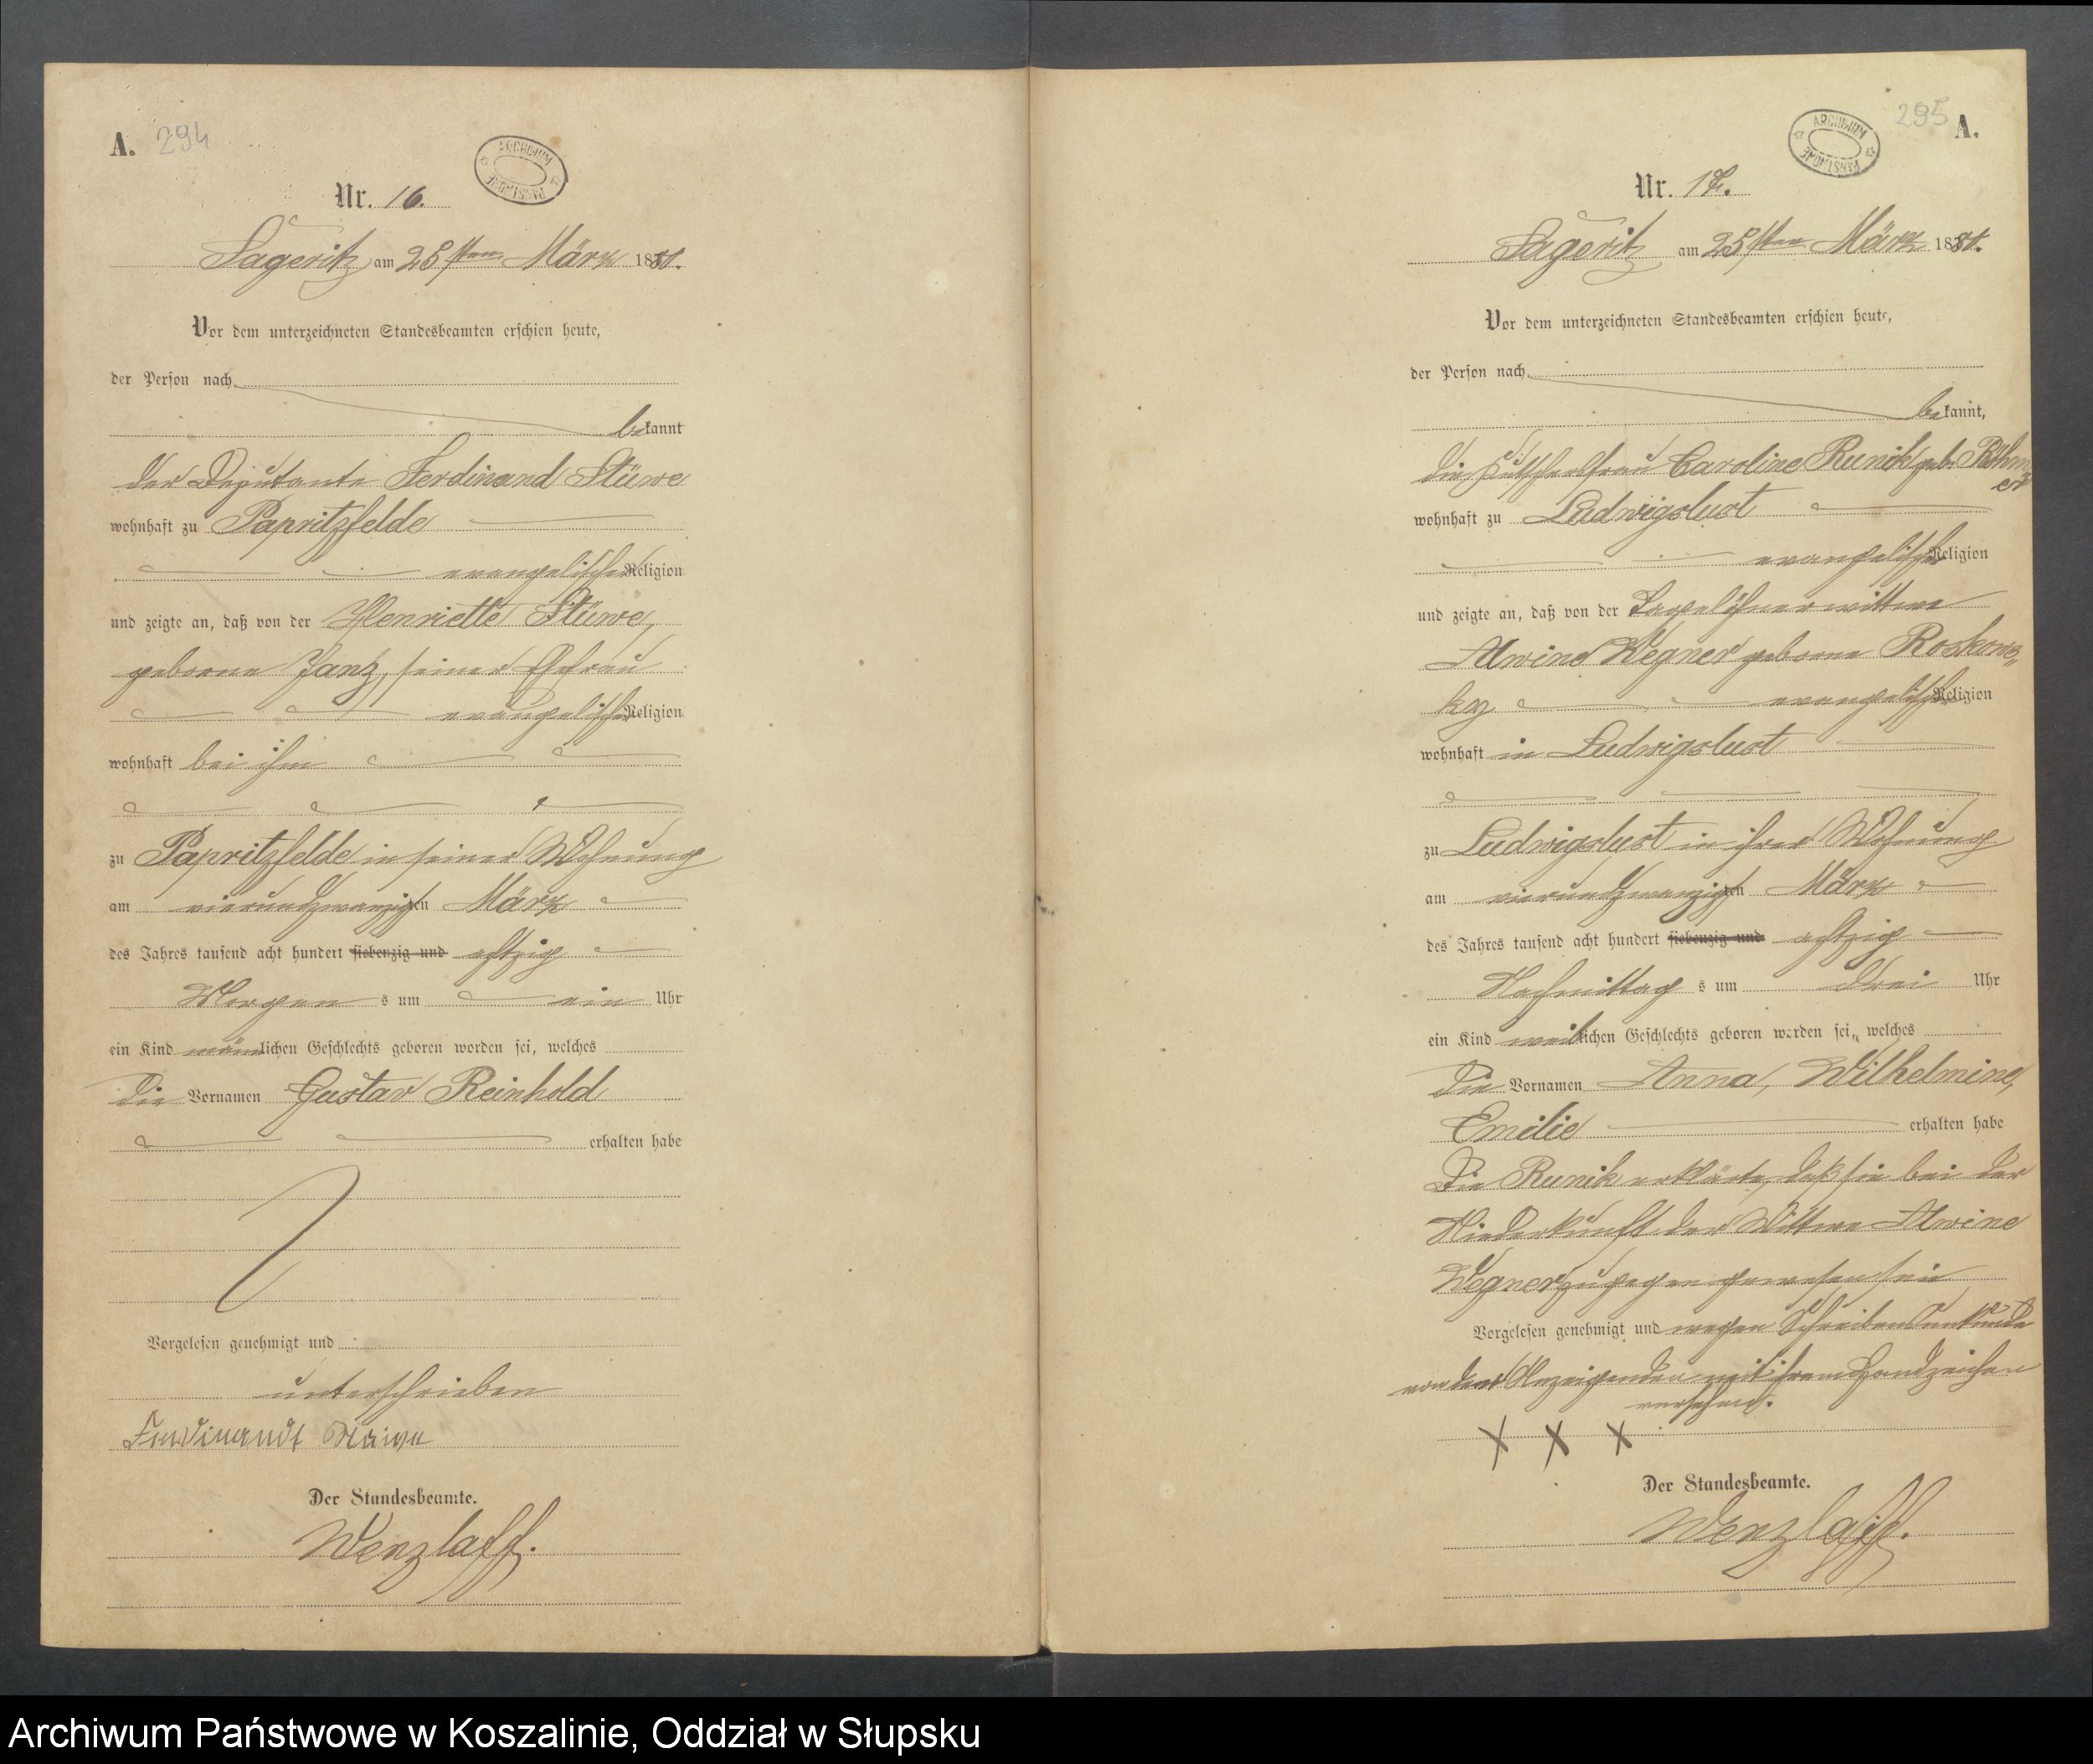 A. 294
ARCHIWUM PAŃSTWOWE
Nr. 16.
Sageritz am 25sten März 1881.
Vor dem unterzeichneten Standesbeamten erschien heute,
der Person nach
bekannt
der Deputante Ferdinand Stüwe
wohnhaft zu Papritzfelde
evangelischer Religion
und zeigte an, daß von der Henriette Stüwe,
geborne Janz, seiner Ehefrau
evangelischer Religion
wohnhaft bei ihm
zu Papritzfelde in seiner Wohnung
am vierundzwanzigsten März
des Jahres tausend acht hundert siebenzig und achtzig
Morgens um ein Uhr
ein Kind männlichen Geschlechts geboren worden sei, welches
die Vornamen Gustav Reinhold
erhalten habe
Vorgelesen genehmigt und
unterschrieben
Ferdinandt
Der Standesbeamte.
Wenzlaff.
295 A.
ARCHIWUM PAŃSTWOWE
Nr. 17.
Sageritz am 25sten März 1881.
Vor dem unterzeichneten Standesbeamten erschien heute,
der Person nach
bekannt,
die Caroline Runik geb.
wohnhaft zu Ludwigslust
evangelischer Religion
und zeigte an, daß von der Tagelöhnerwittwe
Alwine Wegner geborne Roskows
ky evangelischer Religion
wohnhaft in Ludwigslust
zu Ludwigslust in ihrer Wohnung
am vierundzwanzigsten März
des Jahres tausend acht hundert siebenzig und achtzig
Nachmittags um drei Uhr
ein Kind weiblichen Geschlechts geboren worden sei, welches
die Vornamen Anna, Wilhelmine,
Emilie erhalten habe
Die Runik erklärte, daß sie bei der
Niederkunft der Wittwe Alwine
Wegner zugegen gewesen sei
Vorgelesen genehmigt und wegen Schreibensunkunde
von der Anzeigenden mit ihrem Handzeichen
versehen.
X X X
Der Standesbeamte.
Wenzlaff.
Archiwum Państwowe w Koszalinie, Oddział w Słupsku